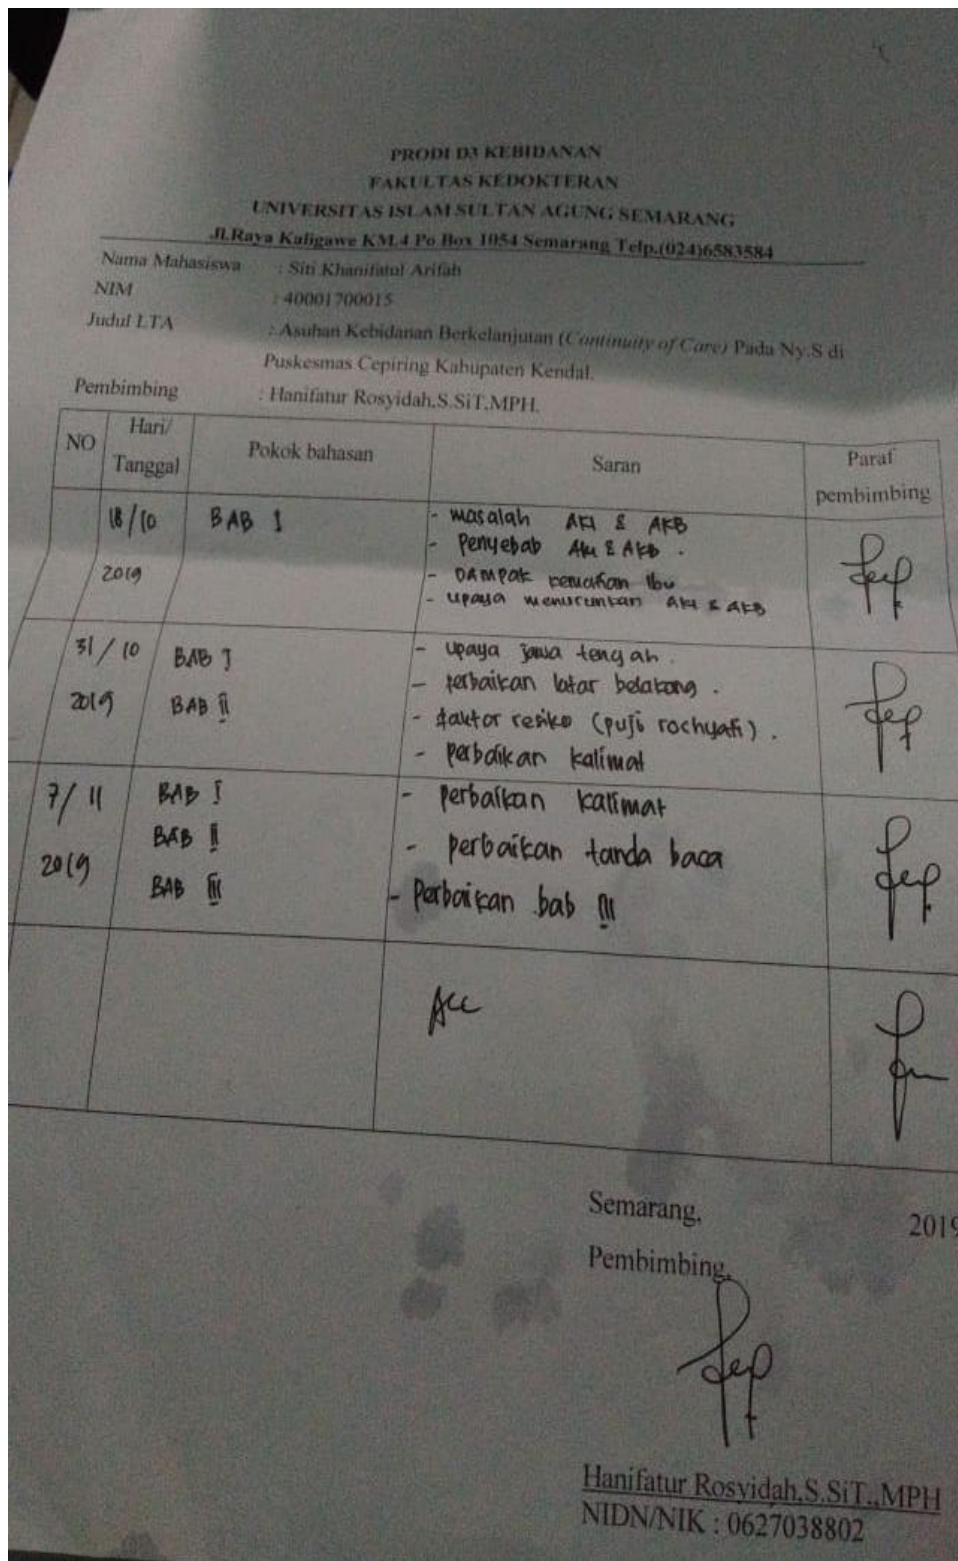 PRODI D3 KEBIDANAN
FAKULTAS KEDOKTERAN
UNIVERSITAS ISLAM SULTAN AGUNG SEMARANG
Jl.Raya Kaligawe KM.4 Po Box 1054 Semarang Telp.(024)6583584
Nama Mahasiswa : Siti Khanifatul Arifah
NIM : 40001700015
Judul LTA : Asuhan Kebidanan Berkelanjutan (Continuity of Care) Pada Ny.S di
Puskesmas Cepiring Kabupaten Kendal.
Pembimbing : Hanifatur Rosyidah,S.SiT,MPH.
NO Hari/ Tanggal Pokok bahasan Saran Paraf pembimbing
18/10 2019 BAB I
- masalah AKI & AKB
- Penyebab AKI & AKB.
- DAMPAK kematian ibu
- upaya menurunkan AKI & AKB
31/10 2019 BAB I
BAB II
- upaya jawa tengah.
- perbaikan latar belakang.
- faktor resiko (puji rochyati).
- perbaikan kalimat
7/11 2019 BAB I
BAB II
BAB III
- perbaikan kalimat
- perbaikan tanda baca
- Perbaikan bab III
Acc
Semarang, 2019
Pembimbing,
Hanifatur Rosyidah,S.SiT.,MPH
NIDN/NIK : 0627038802